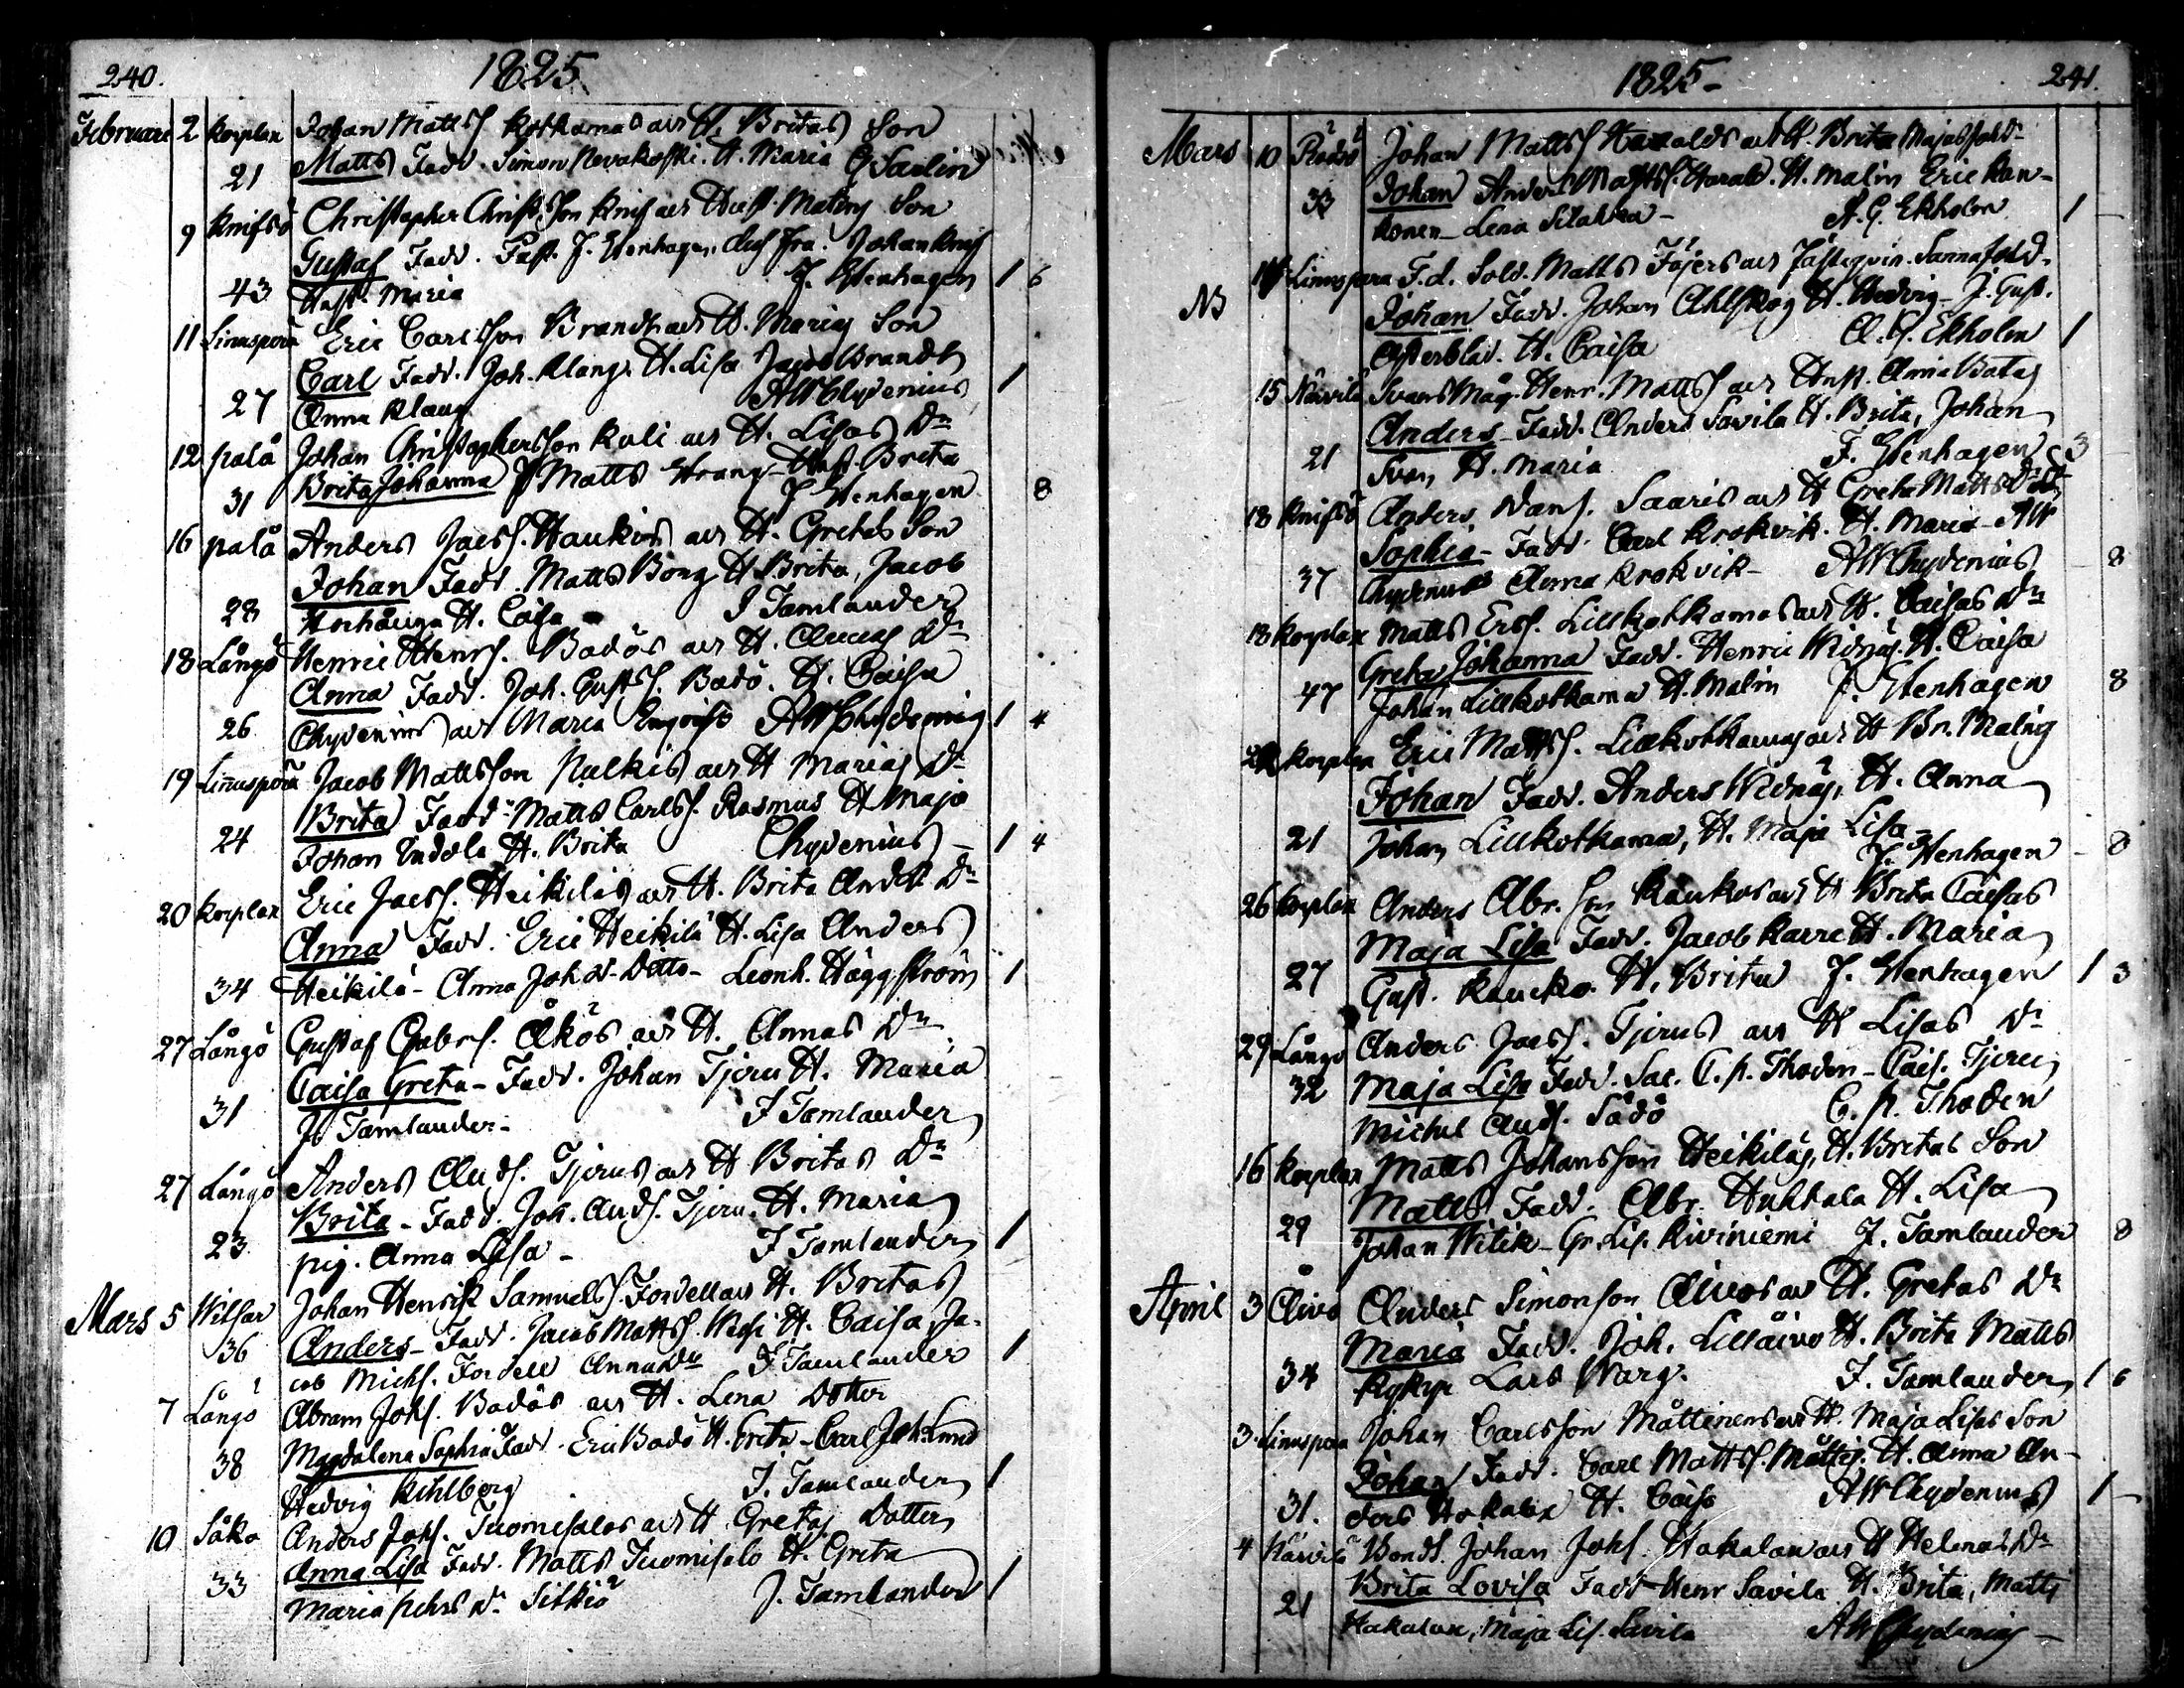 240.
1825.
Februari 2 Korplax Johan Matts. Kotkamas och H. Britas Son
21 Matts Fadd. Simon H. Maria G Saelin
9 Knifsö Christopher Christ. Son Knif och Hust. Malins Son
Gustaf Fadd. Past. J. Stenhagen, Johan Knif
43 Hust. Maria J. Stenhagen 1 6
11 Linnusperä Eric Carlsson Brandts och H. Marias Son
Carl Fadd. Joh. Klang. H. Lisa Jacob Brandt
27 Anna Klang AW Chydenius 1
12 palå Johan Christophersson Kuli och H. Lisas Dr
31 Brita Johanna Matts Strang Hust. Brita
J Stenhagen 8
16 palå Anders Jacs. Haukis och H. Gretas Son
Johan Fadd. Matts Bong H Brita, Jacob
28 H. Caisa J Tamlander
18 Långö Henric Henrs. Badös och H. Annas Dr
Anna Fadd. Joh. Gusts. Badö. H. Caisa
26 Chydenius och Maria AW Chydenius 1 4
19 Linnusperä Jacob Mattsson Pulkis och H Marias Dr
Brita Fadd. Matts Carls. Rasmus H Maja
24 Johan Indola H. Brita Chydenius – 1 4
20 Korplax Eric Jacs. Heikiläs och H. Brita Andrs Dr
Anna Fadd. Eric Heikilä H. Lisa Anders
34 Heikilä – Anna Johs Dotter – Leonh. Häggström 1
27 Långö Gustaf Gabrs. Åkös och H. Annas Dr
Caisa Greta – Fadd. Johan Tjeru H. Maria
31 J Tamlander – J Tamlander
27 Långö Anders Ands. Tjerus och H Britas Dr
Brita – Fadd. Joh. Ands. Tjeru. H. Maria
23 pig. Anna Lisa – J Tamlander 1
Mars 5 Witsar Johan Henrik Samuels. Fordell och H. Britas
36 Anders – Fadd. Jacob Matts. H. Caisa, Ja-
cob Michs. Fordell Anna Dr J Tamlander 1
7 Långö Abram Johs. Badös och H. Lena Dotter
38 Magdalena Sophia Fadd. Eric Badö H. Greta – Carl Joh: Lund
Hedvig Kihlberg J. Tamlander 1
10 Såka Anders Johs. Tuomisalos och H Gretas Dotter
33 Anna Lisa Fadd. Matts Tuomisalo H. Greta
Maria Pehrs Dr Sitkiö J. Tamlander 1
1825–
241.
Mars 10 Rödsö Johan Matts. Haralds och H. Brita Majas
33 Johan Anders Matts. Harald. H. Malin Eric Kan-
konen – Lena Silahka – A. G. Ekholm 1 –
14 Linnusperä F.d. Sold. Matts Föjers och Sanna
NB Johan Fadd. Johan Ahlskog H. Hedvig – J. Gust.
H. Caisa A. G. Ekholm 1
15 Såvila Svars Måg. Henr. Matts. och Hust. Anna
Anders – Fadd. Anders Savila H. Brita, Johan
21 Svar, H. Maria J. Stenhagen 3
18 Knifsö Anders Dans. Saaris och H Greta Matts Dr
Sophia – Fadd. Carl Krokvik. H. Maria – AW
37 Chydenius Anna Krokvik – AW Chydenius – 8
18 Korplax Matts Ers. Lillkotkamas och H. Caisas Dr
Greta Johanna Fadd. Henric Widnäs. H. Caisa
47 Johan Lillkotkama H. Malin J. Stenhagen 8
Korplax Eric Matts. Lillkotkamas och H Br. Malins
Johan Fadd. Anders Widnäs, H. Anna
21 Johan Lillkotkama, H. Maja Lisa
J. Stenhagen – 8
26 Korplax Anders Abr. Son Kaukos och H Brita Caisas
Maja Lisa Fadd. Jacob Karre H. Maria
27 Gust. Kaucko H. Brita J. Stenhagen 1 3
29 Långö Anders Jacs. Tjerus och H Lisas Dr
32 Maja Lisa Fadd. Sac. C. P. Thoden – Cais. Tjeru
Michel Ands. Sådö C. P. Thoden
16 Korplax Matts Johansson Heikiläs, H. Britas Son
Matts Fadd. Abr. Huhtala H. Lisa
29 Johan Witik – Gr. Lis. Kiviniemi J. Tamlander 8
April 3 Åivo Anders Simonson Åivos och H. Gretas Dr
Maria Fadd. Joh. Lillåivo H. Brita Matts
34 Lars Warg. J. Tamlander 1 6
3 Linnusperä Johan Carlsson Måttinens och H. Maja Lisas Son
Johan Fadd. Carl Matts. Måttis. H. Anna An-
31. ders Hokalax H. Caisa AW Chydenius 1 –
4 Såvila Bonds. Johan Johs. Hakalax och H Helenas Dr
Brita Lovisa Fadd Henr Savila H. Brita, Matts
21 Hakalax, Maja Lis. Savila AW Chydenius –